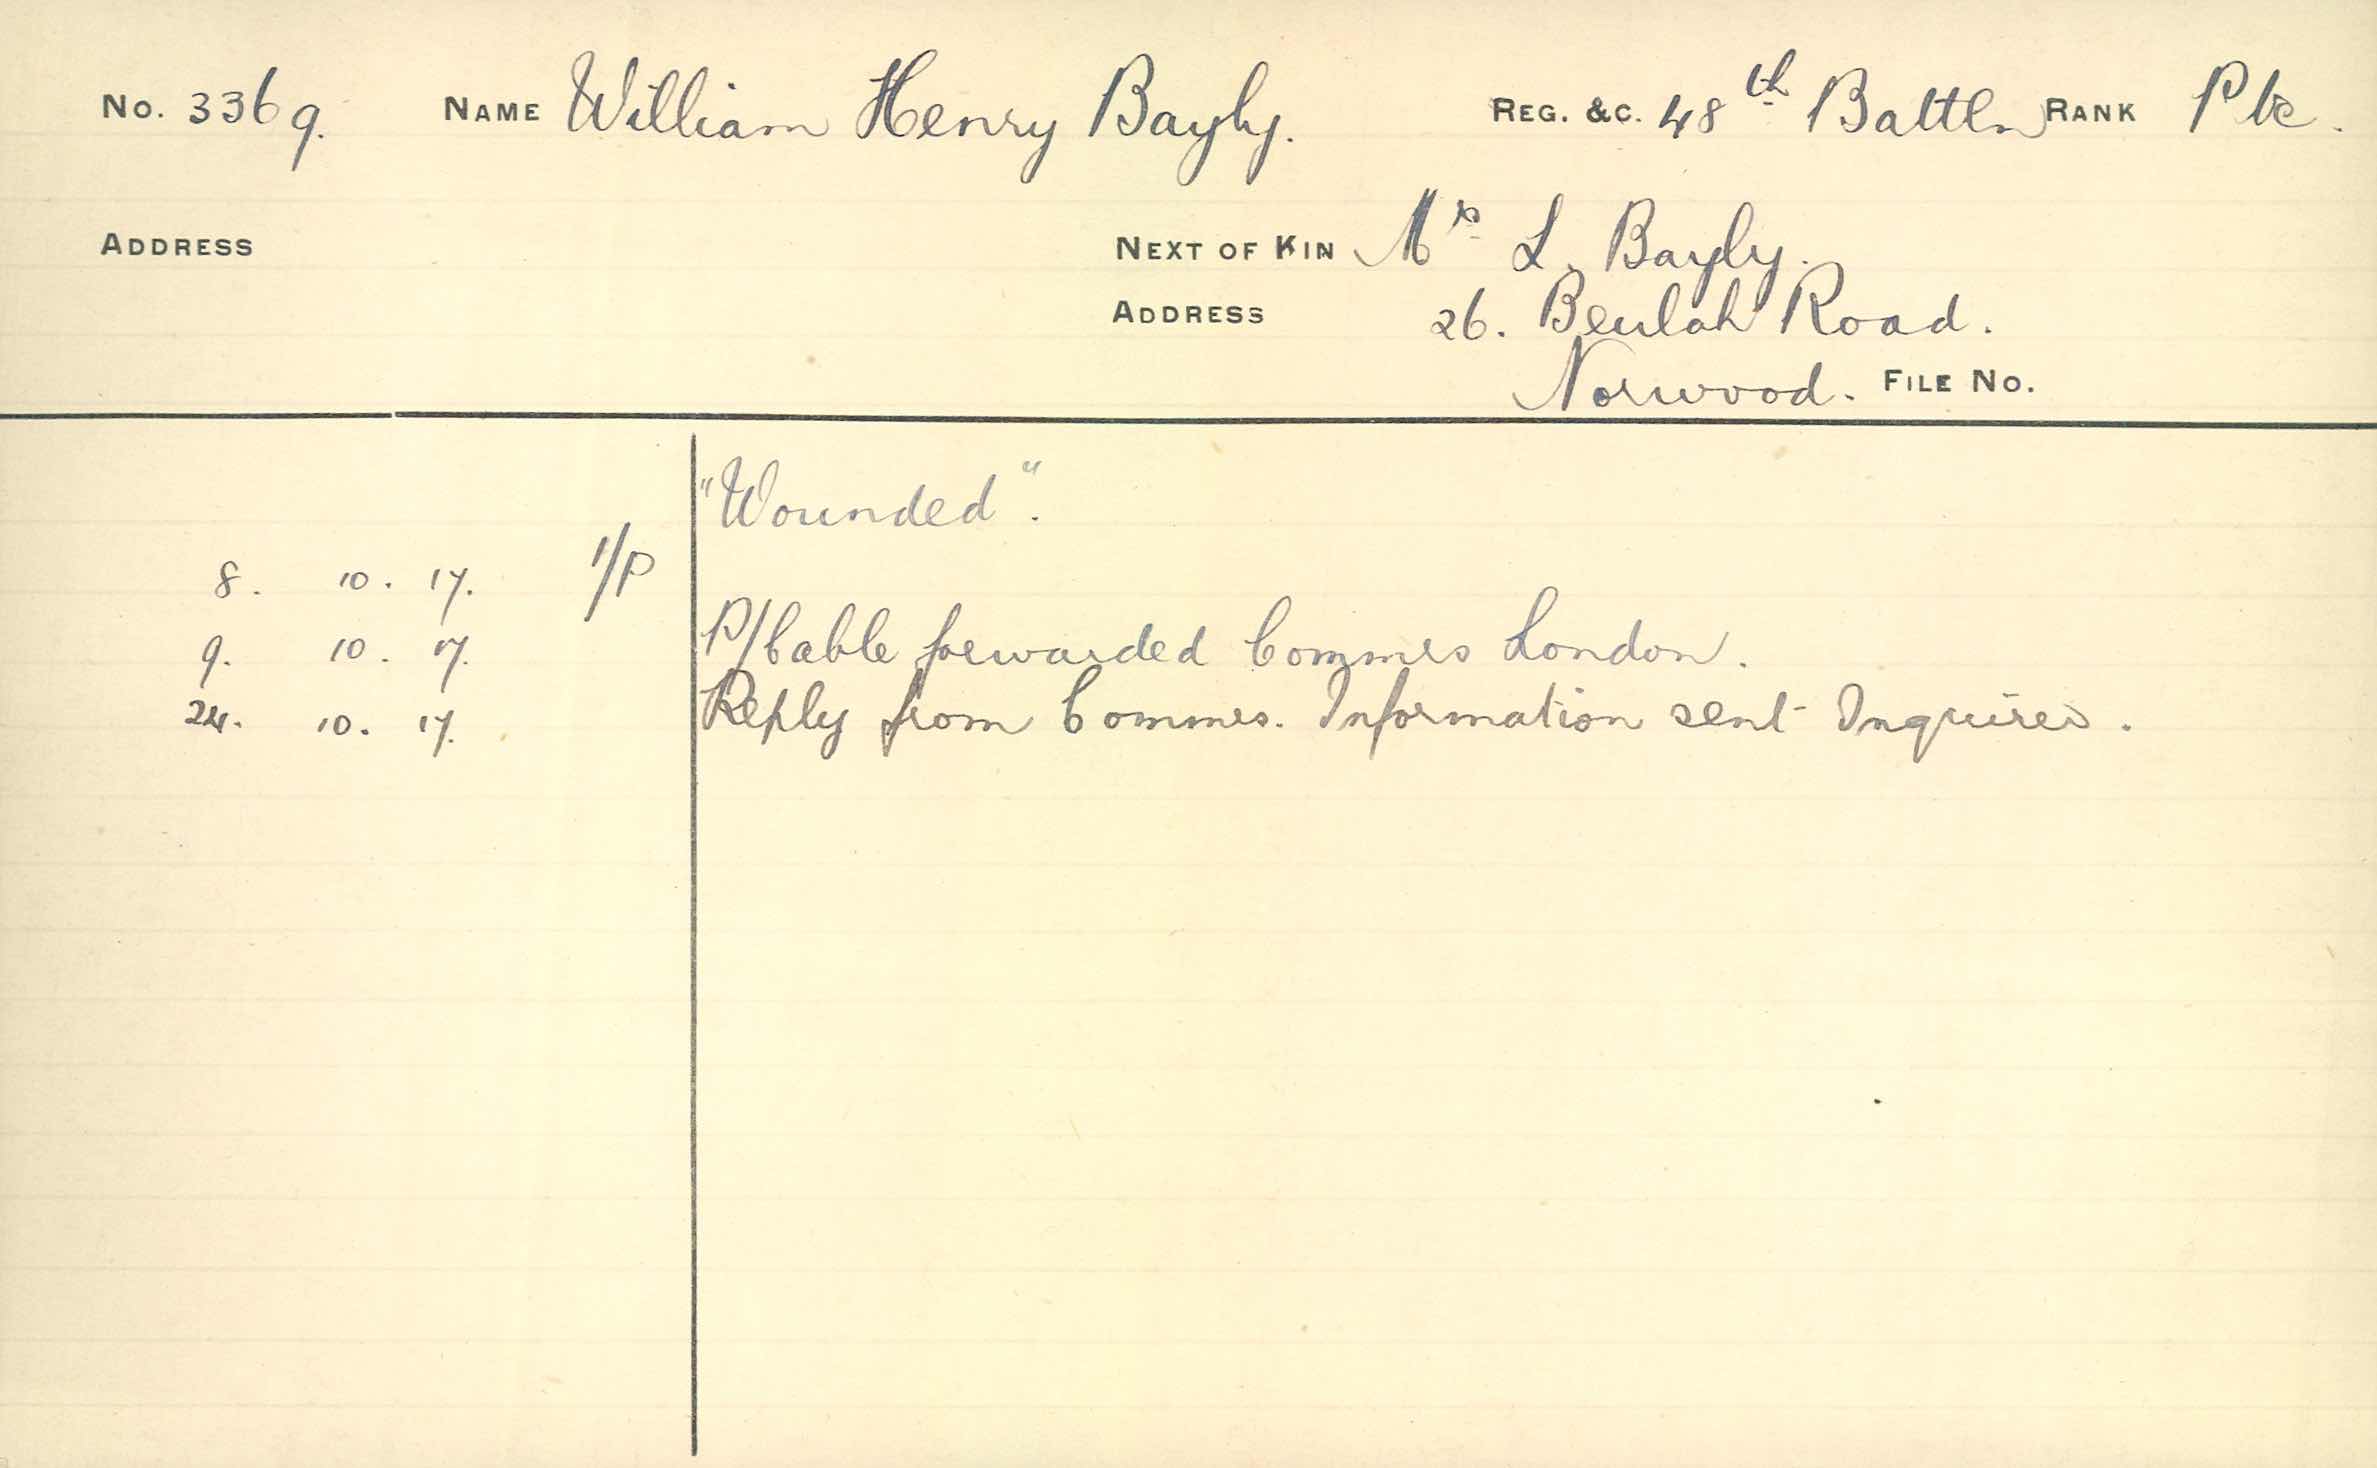 No. 3369. NAME William Henry Bayly. REG. &C. 48th Battln RANK Pte.
ADDRESS NEXT OF KIN Mrs L. Bayly.
ADDRESS 26. Beulah Road.
Norwood. FILE No.
"Wounded".
8. 10. 17. 1/P
9. 10. 17. P/Cable forwarded Commrs London.
24. 10. 17. Reply from Commrs. Information sent Inquirer.